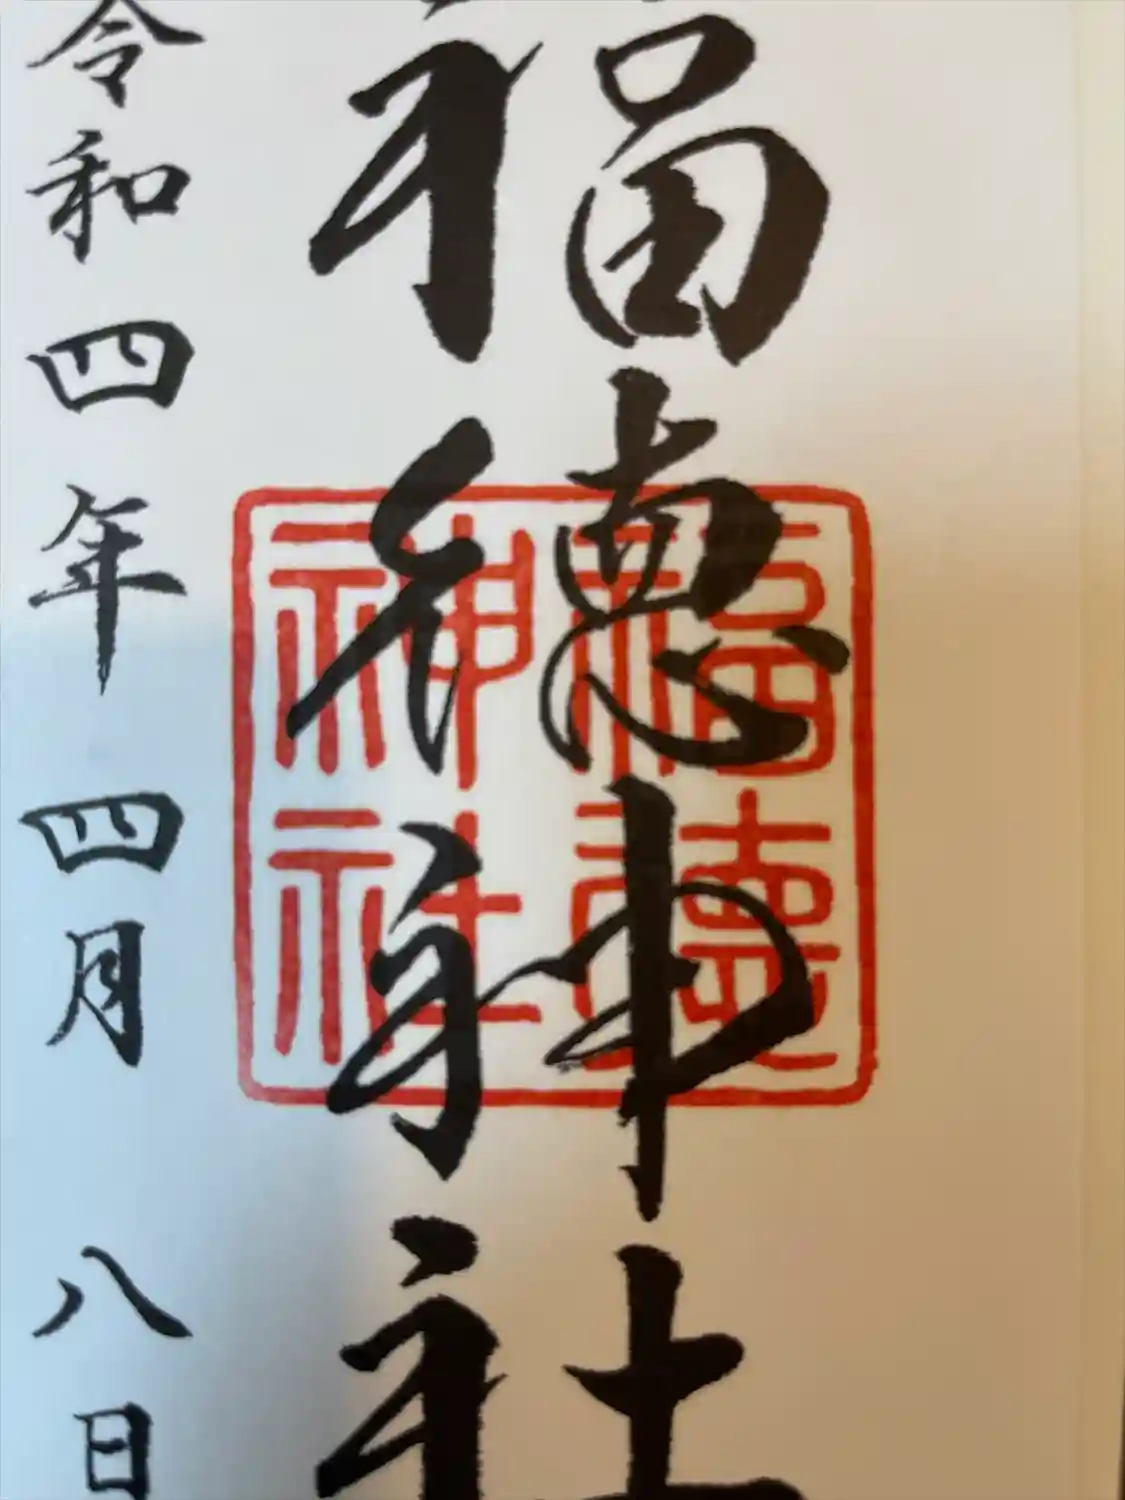 福徳神社
福徳
神社
令和四年四月八日